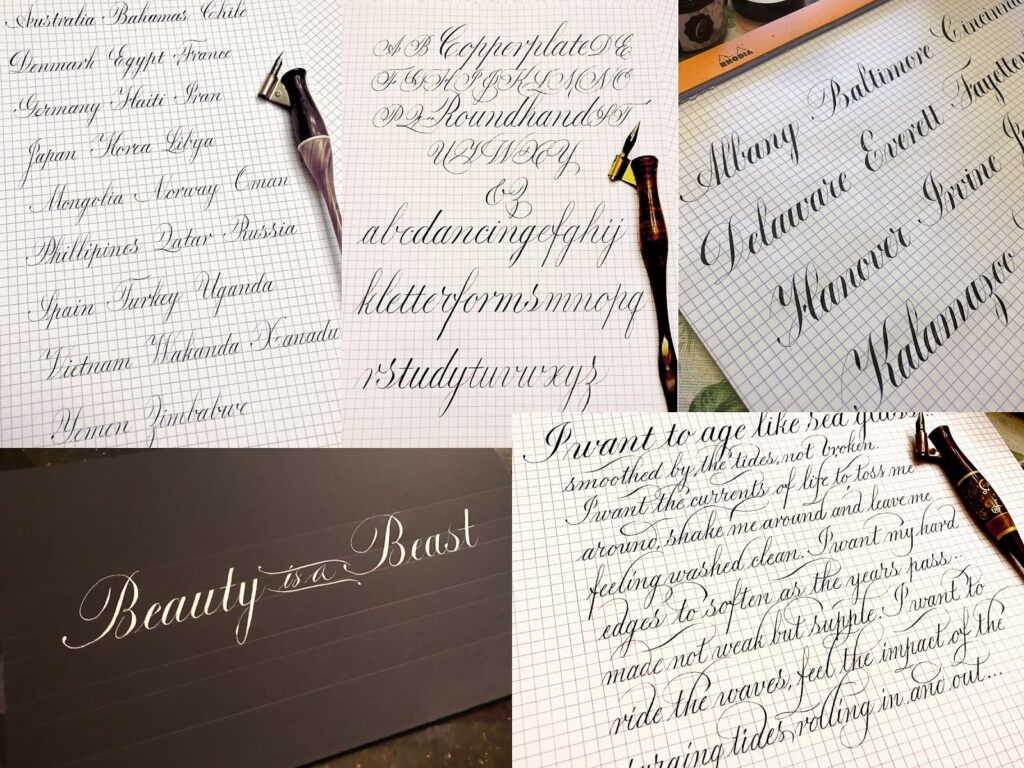 Australia Bahamas Chile
Denmark Egypt France
Germany Haiti Iran
Japan Korea Libya
Mongolia Norway Oman
Phillipines Qatar Russia
Spain Turkey Uganda
Vietnam Wakanda Xanadu
Yemen Zimbabwe
A B Copperplate D E
F G H I J K L M N O
P Q Roundhand S T
U V W X Y
& Z
abcdancingefghij
kletterformsmnopq
rstudytuvwxyz
RHODIA
Albany Baltimore
Delaware Everett
Hanover Irvine
Kalamazoo
Beauty is a Beast
I want to age like sea glass...
smoothed by the tides, not broken.
I want the currents of life to toss me
around, shake me around and leave me
feeling washed clean. I want my hard
edges to soften as the years pass...
made not weak but supple. I want to
ride the waves, feel the impact of the
surging tides rolling in and out...